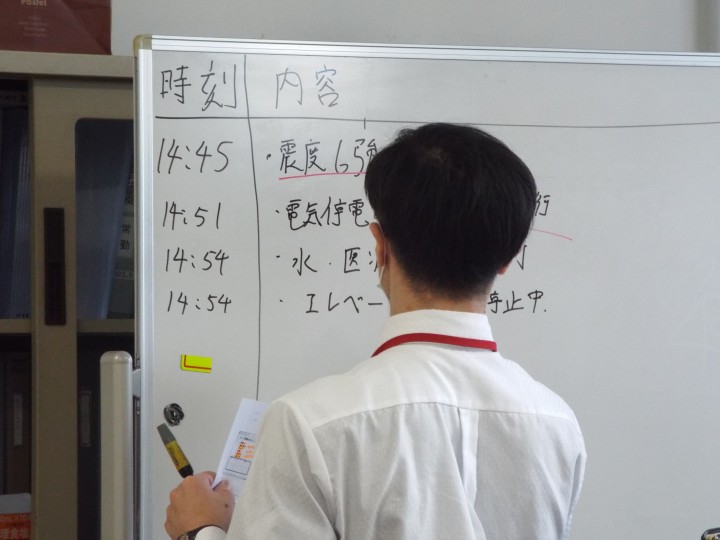 時刻 内容
14:45 ・震度6強
14:51 ・電気停電 行
14:54 ・水・医
14:54 ・エレベー 停止中.